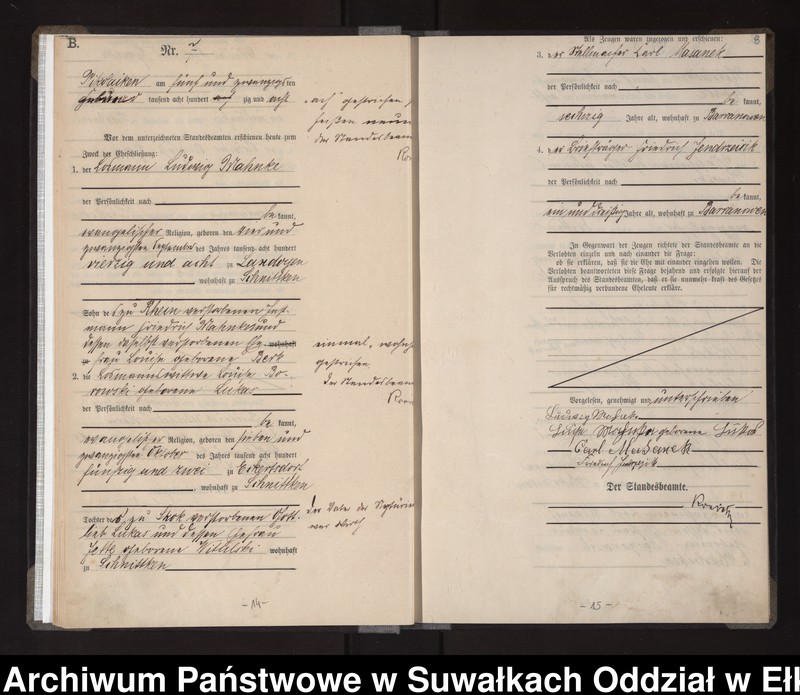 B.
Nr. 7
Nikolaiken am fünf und zwanzigsten
Februar tausend acht hundert acht zig und acht
Vor dem unterzeichneten Standesbeamten erschienen heute zum
Zweck der Eheschließung:
1. der Losmann Ludwig Mahnke
der Persönlichkeit nach
be kannt,
evangelischer Religion, geboren den vier und
zwanzigsten September des Jahres tausend acht hundert
vierzig und acht zu
, wohnhaft zu Schnittken
Sohn de s zu Rhein verstorbenen
mann Friedrich Mahnke und
dessen daselbst verstorbenen Ehe wohnhaft
zu frau Louise geborene Berk
2. die Losmannswittwe Louise Bo-
rowski geborene Lukas
der Persönlichkeit nach
be kannt,
evangelischer Religion, geboren den sieben und
zwanzigsten Oktober des Jahres tausend acht hundert
fünfzig und zwei zu Eckertsdorf
, wohnhaft zu Schnittken
Tochter des zu verstorbenen Gott-
lieb Lukas und dessen Ehefrau
geborene wohnhaft
zu Schnittken
"ach" gestrichen
der Standesbeam
einmal, wohnh
gestrichen
der Standesbeam
- 14 -
Als Zeugen waren zugezogen und erschienen:
8
3. der Stellmacher Carl Masanek
der Persönlichkeit nach
be kannt,
sechzig Jahre alt, wohnhaft zu Barranowen
4. der Briefträger Friedrich Jendrzeizik
der Persönlichkeit nach
be kannt,
ein und dreißig Jahre alt, wohnhaft zu Barranowen
In Gegenwart der Zeugen richtete der Standesbeamte an die
Verlobten einzeln und nach einander die Frage:
ob sie erklären, daß sie die Ehe mit einander eingehen wollen. Die
Verlobten beantworteten diese Frage bejahend und erfolgte hierauf der
Ausspruch des Standesbeamten, daß er sie nunmehr kraft des Gesetzes
für rechtmäßig verbundene Eheleute erkläre.
Vorgelesen, genehmigt und unterschrieben
Ludwig Mahnke
geborene Lukas
Carl Masanek
Friedrich
Der Standesbeamte.
- 15 -
Archiwum Państwowe w Suwałkach Oddział w Ełk